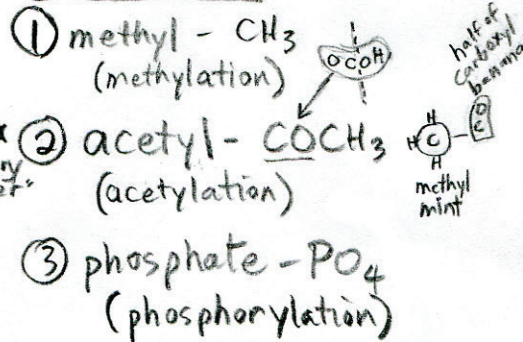 ① methyl - CH3
(methylation)
OCOH
half of
carboxyl
banana
② acetyl - COCH3
(acetylation)
H C H
H
O
C
methyl
mint
③ phosphate - PO4
(phosphorylation)